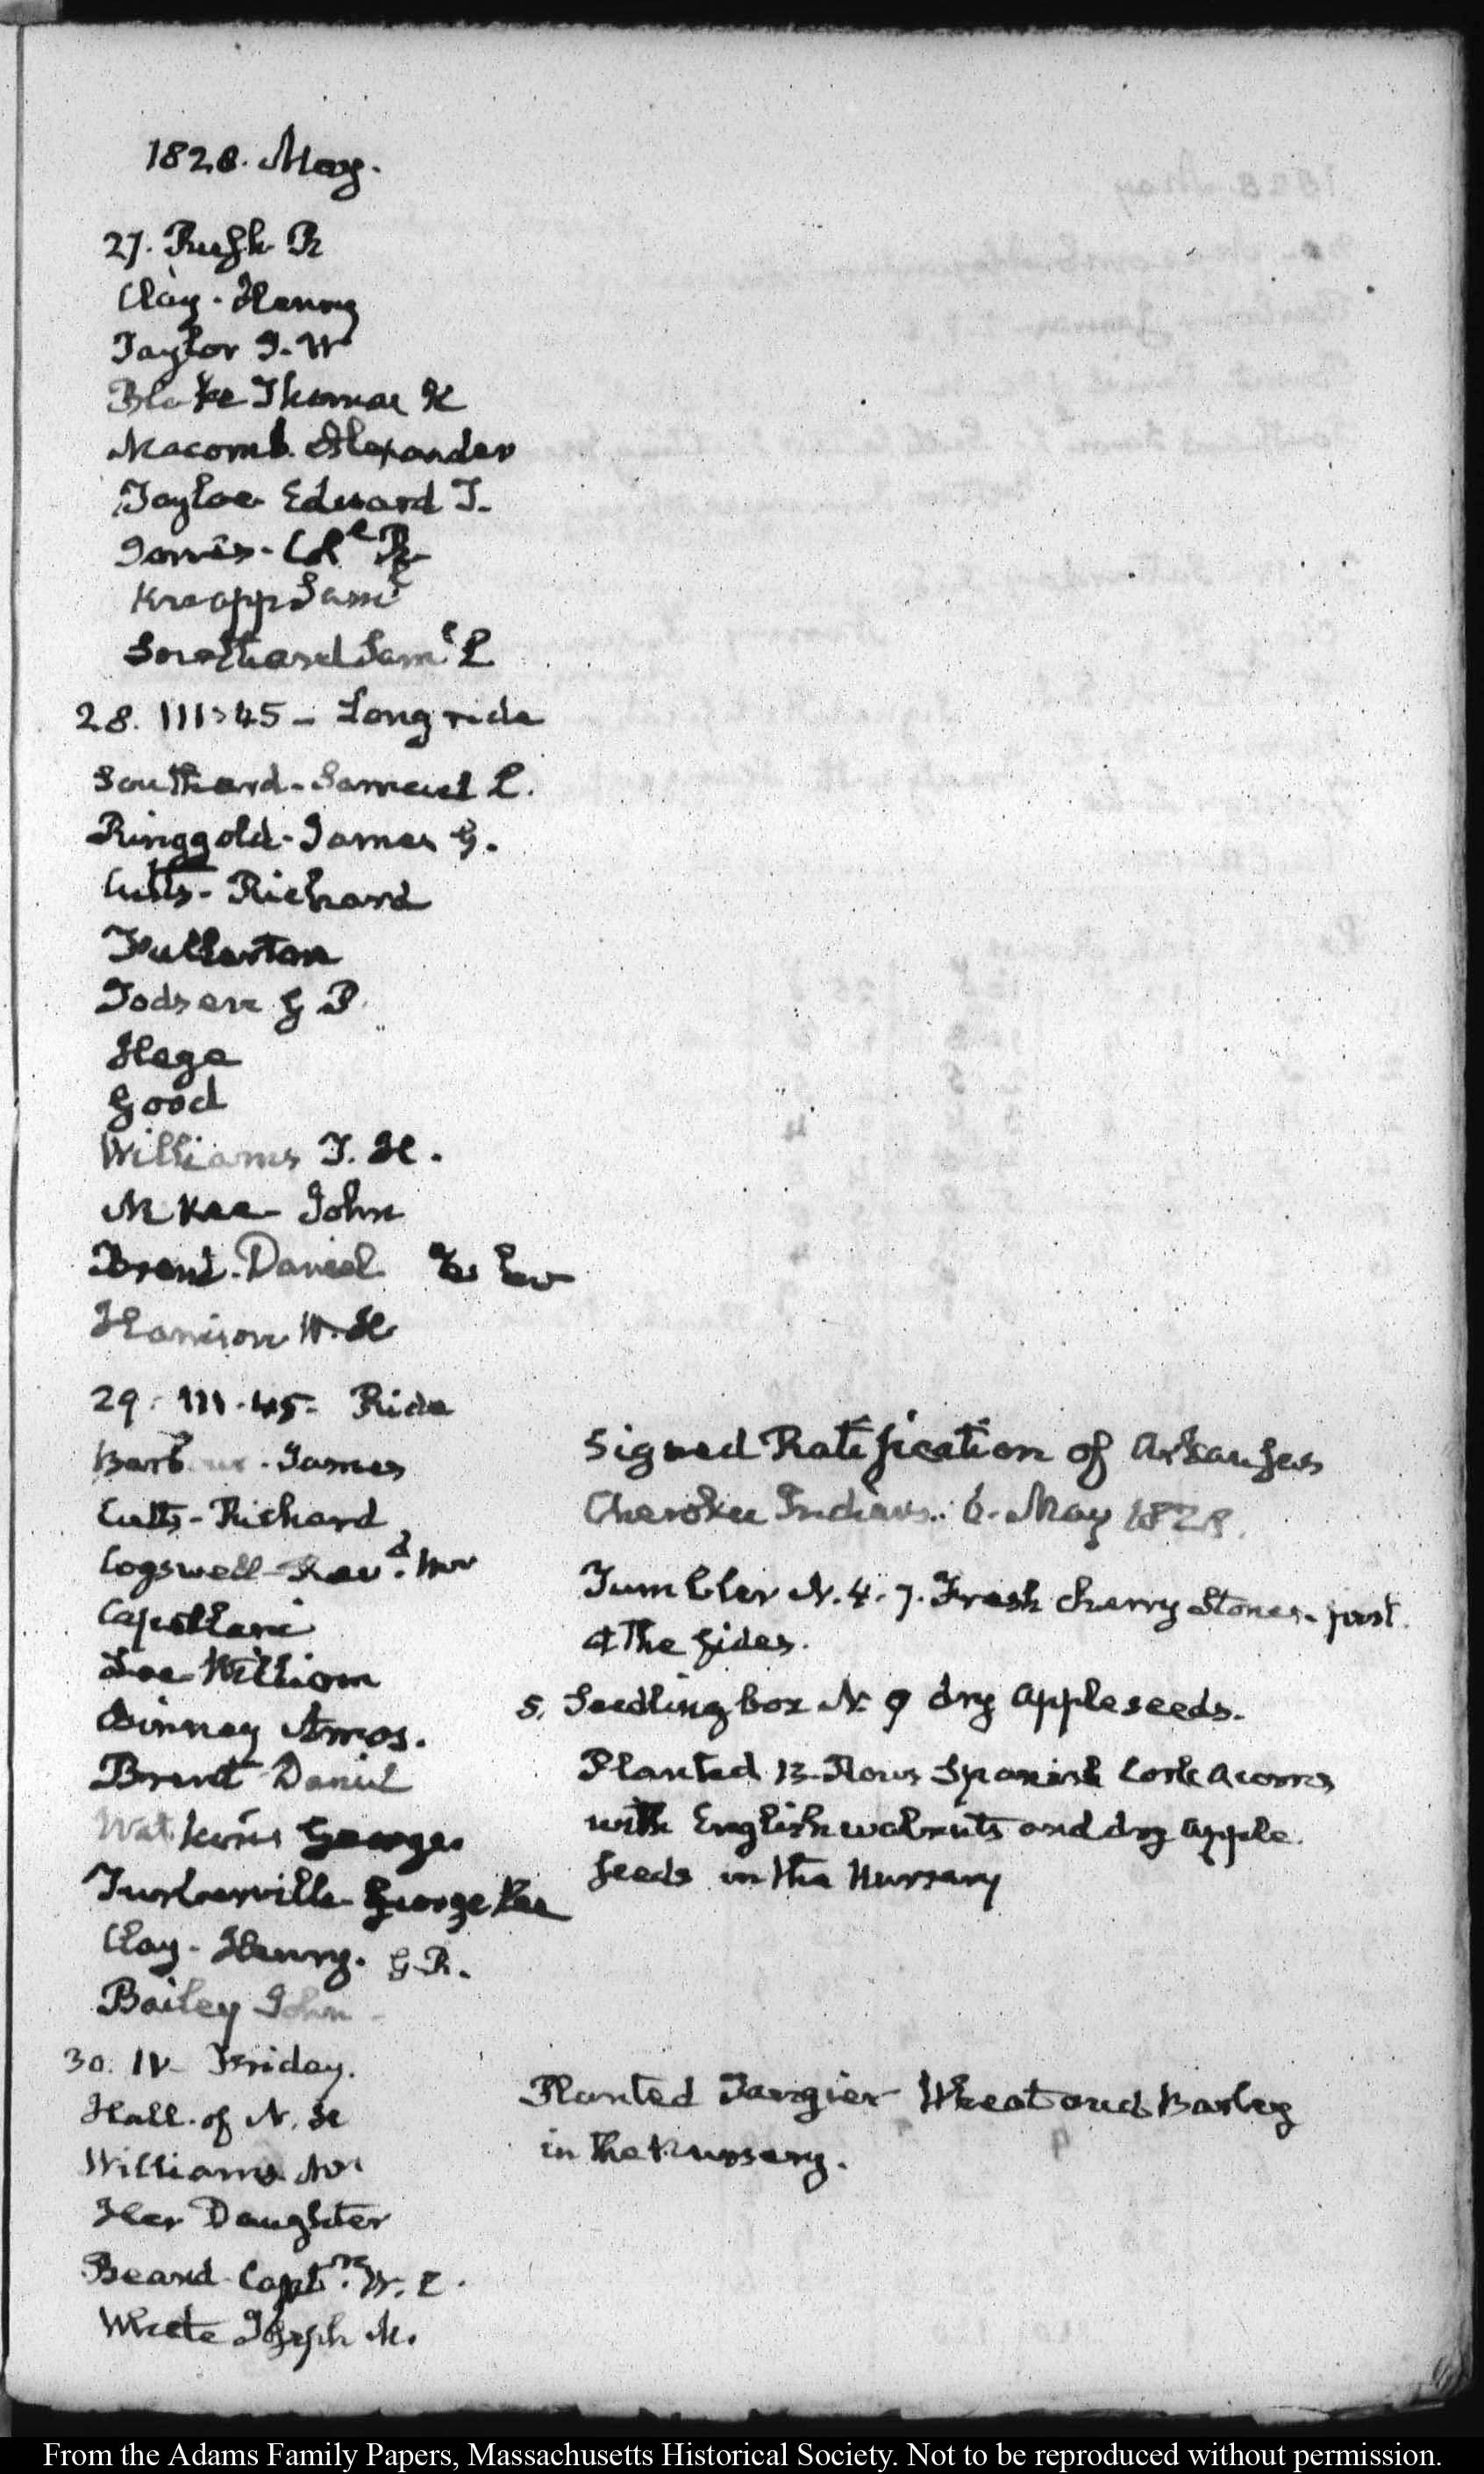 1828. May.
27. Rush R
Clay. Henry
Taylor J. W
Blake Thomas H
Macomb. Alexander
Tayloe Edward T.
Jones. R
Knapp Sam.l
Southard Sam.l L
28. III:45 – Long ride
Southard. Samuel L.
Ringgold. James G.
Cutts. Richard
Fullerton
Todsen G P.
Hege
Good
Williams T. H.
McKee John
Brent. Daniel
Harrison W. H
29. III.45. Ride
Barbour. James
Cutts. Richard
Cogswell Rev.d
Capellani
Lee William
Binney Amos.
Brent Daniel
Watkins George
Turberville George Lee
Clay. Henry. G. R.
Bailey John
Signed Ratification of Arkansas
Cherokee Indians. 6. May 1828.
Tumbler N. 4. 7. Fresh Cherry Stones. just
at the sides.
5. Seedling box N. 9 dry apple seeds.
Planted 13 Rows Spanish Cork acorns
with English walnuts and dry apple
seeds in the Nursery
30. IV. Friday.
Hall. of N. H
Williams
Her Daughter
Beard Capt.n W. C.
White Joseph M.
Planted Tangier Wheat and Barley
in the Nursery.
From the Adams Family Papers, Massachusetts Historical Society. Not to be reproduced without permission.